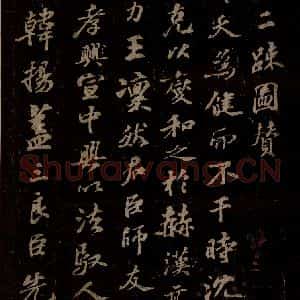 二疎圖贊
天為健而不干時沈
克以燮和之於赫漢
力王凜然君臣師友
孝興宣中興以法馭人
韓揚蓋三良臣先
Shufawang.CN